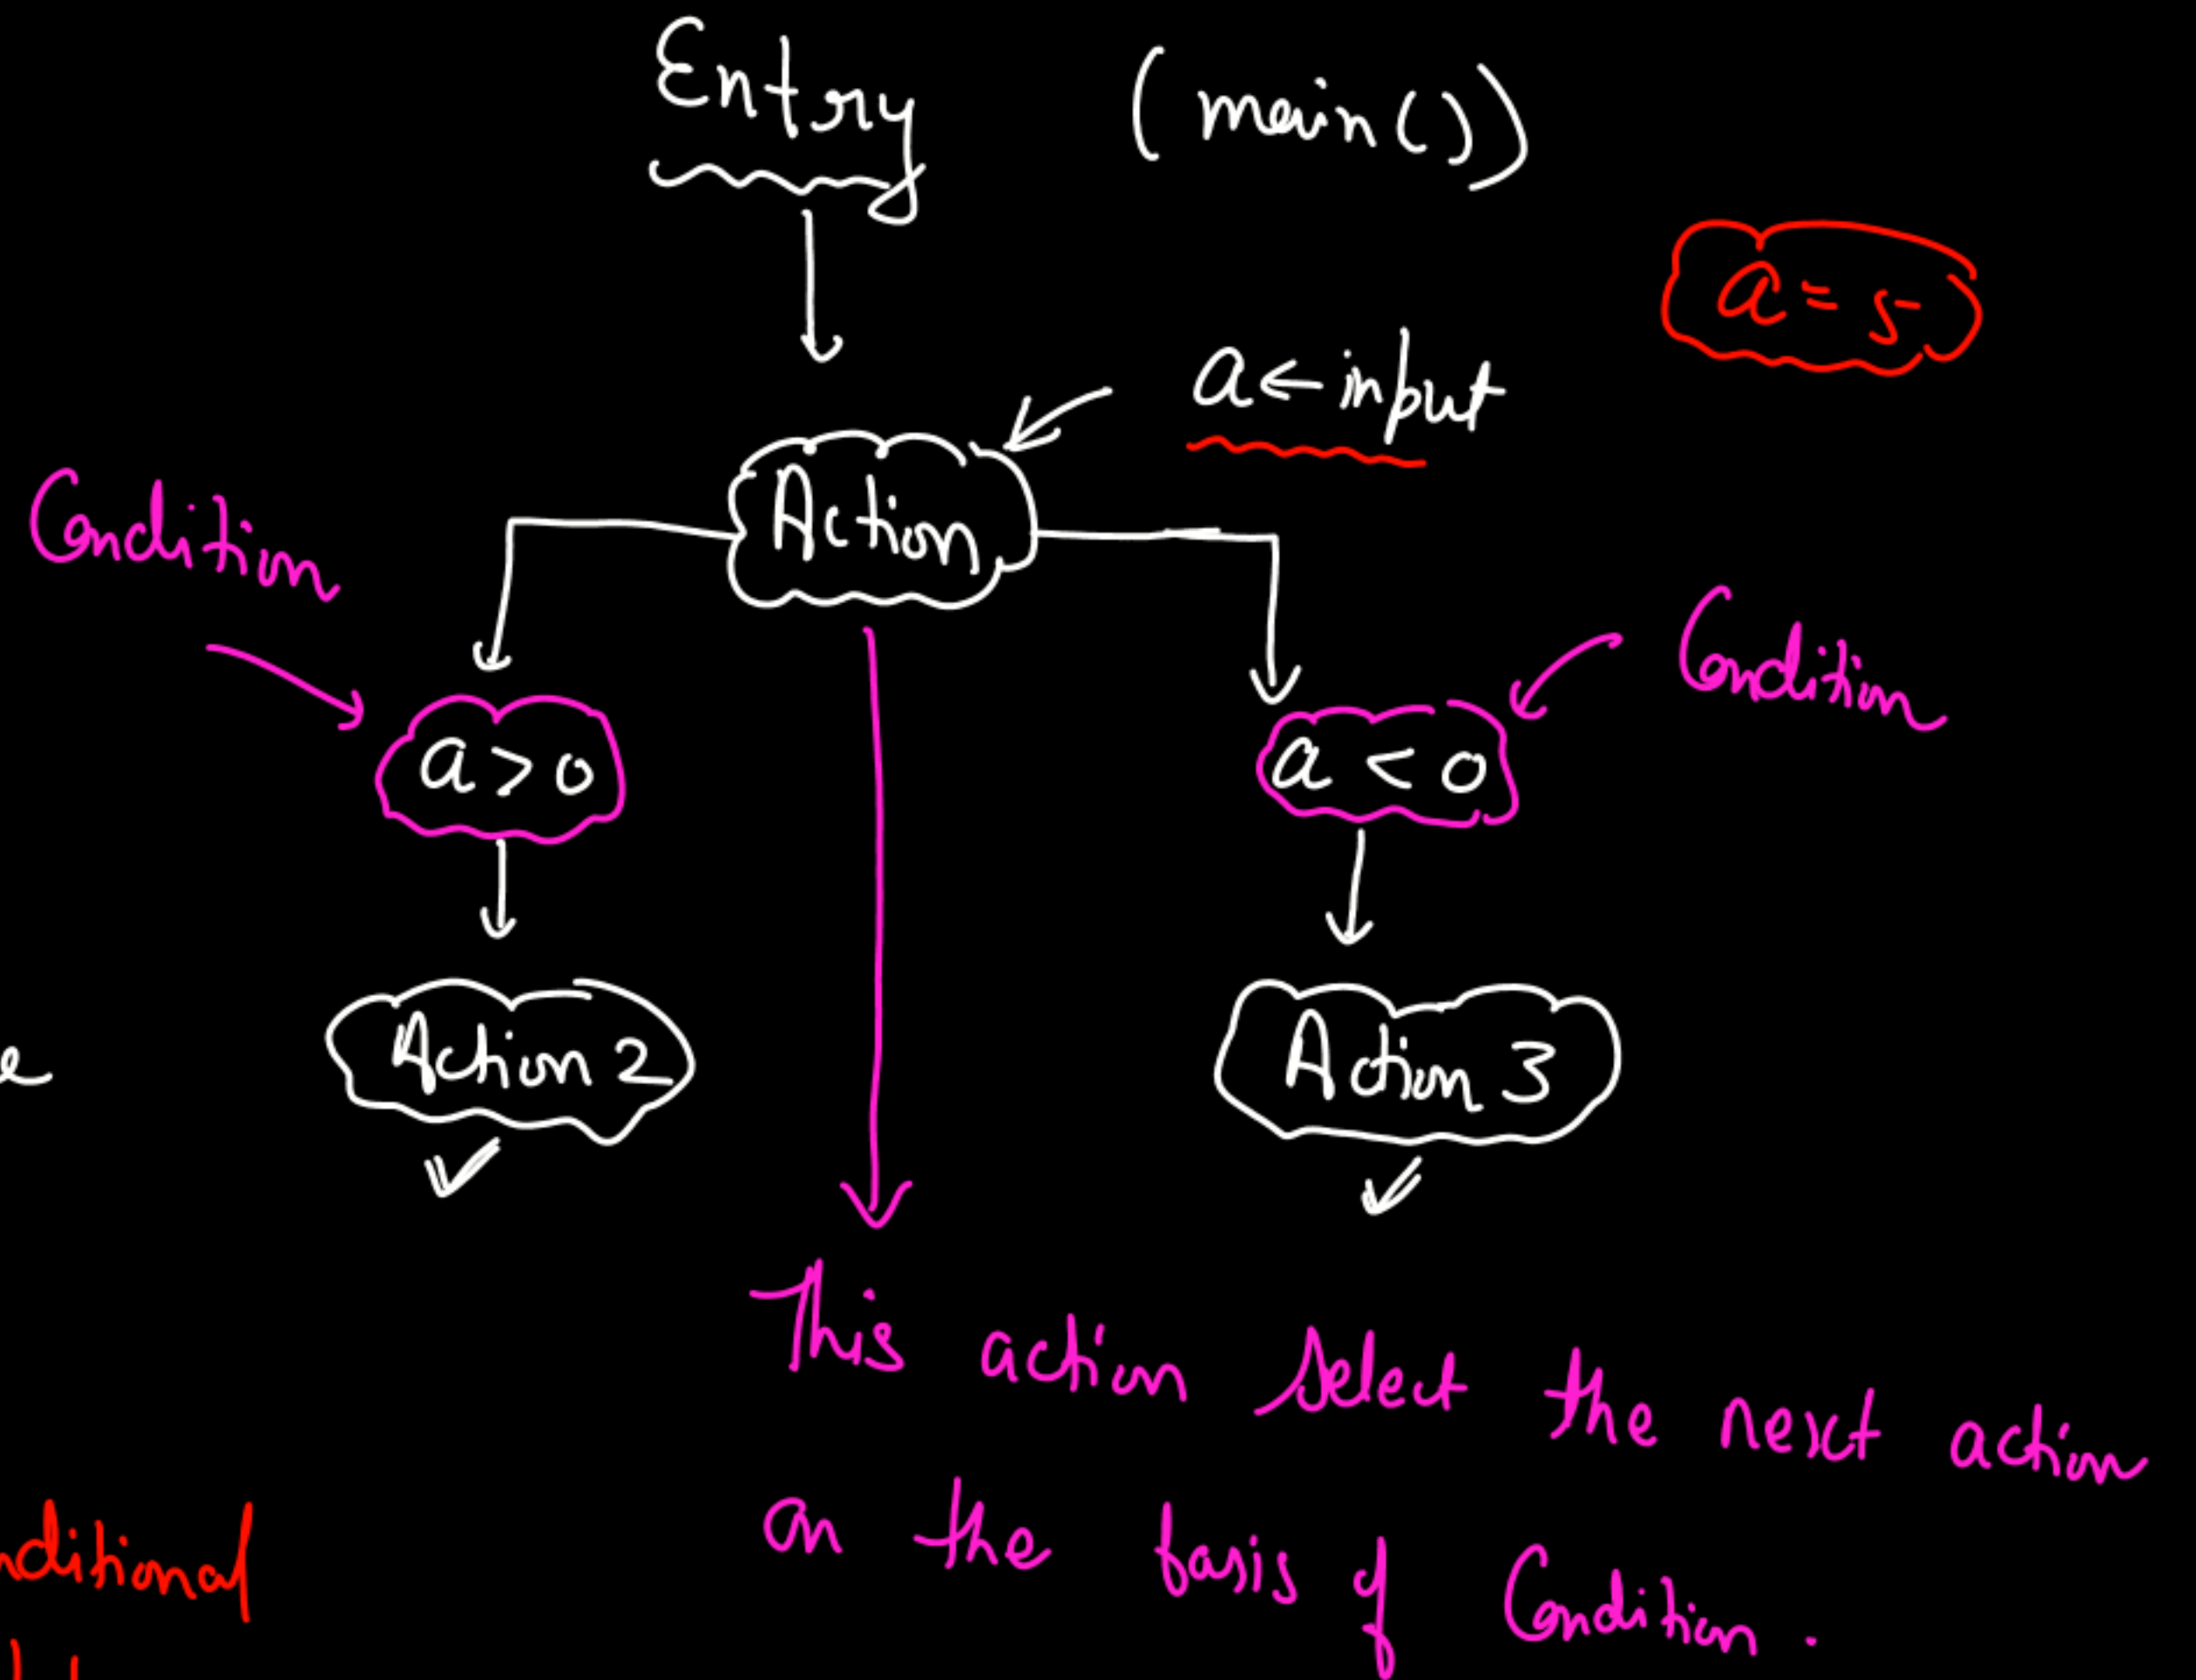 Entry (main())
a = 5
a ← input
Action
Condition
Condition
a > 0
a < 0
Action 2
Action 3
e
This action select the next action
on the basis of Condition.
nditional